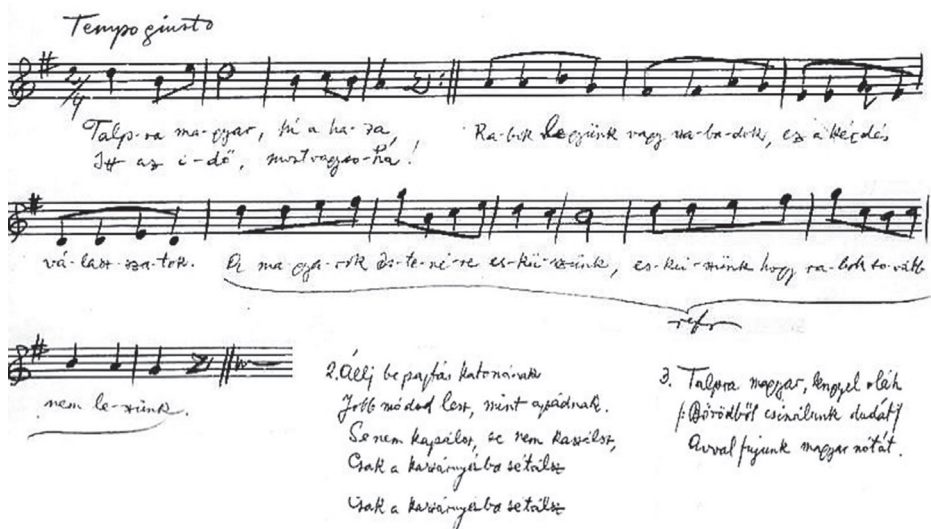 Tempo giusto
2/4
Talp-ra ma-gyar, hí a ha-za, Ra-bok legyünk vagy sza-ba-dok, ez a kérdés
Itt az i-dő, most vagy so-ha!
vá-lasz-sza-tok. A ma-gya-rok Is-te-né-re es-kü-szünk, es-kü-szünk hogy ra-bok to-vább
refr
nem le-szünk.
2. Állj be pajtás katonának
Jobb módod lesz, mint apádnak.
Se nem kapálsz, se nem kaszálsz,
Csak a kaszárnyába sétálsz
Csak a kaszárnyába sétálsz
3. Talpra magyar, lengyel oláh
/: Bőrödből csinálunk dudát :/
Avval fújunk magyar nótát.